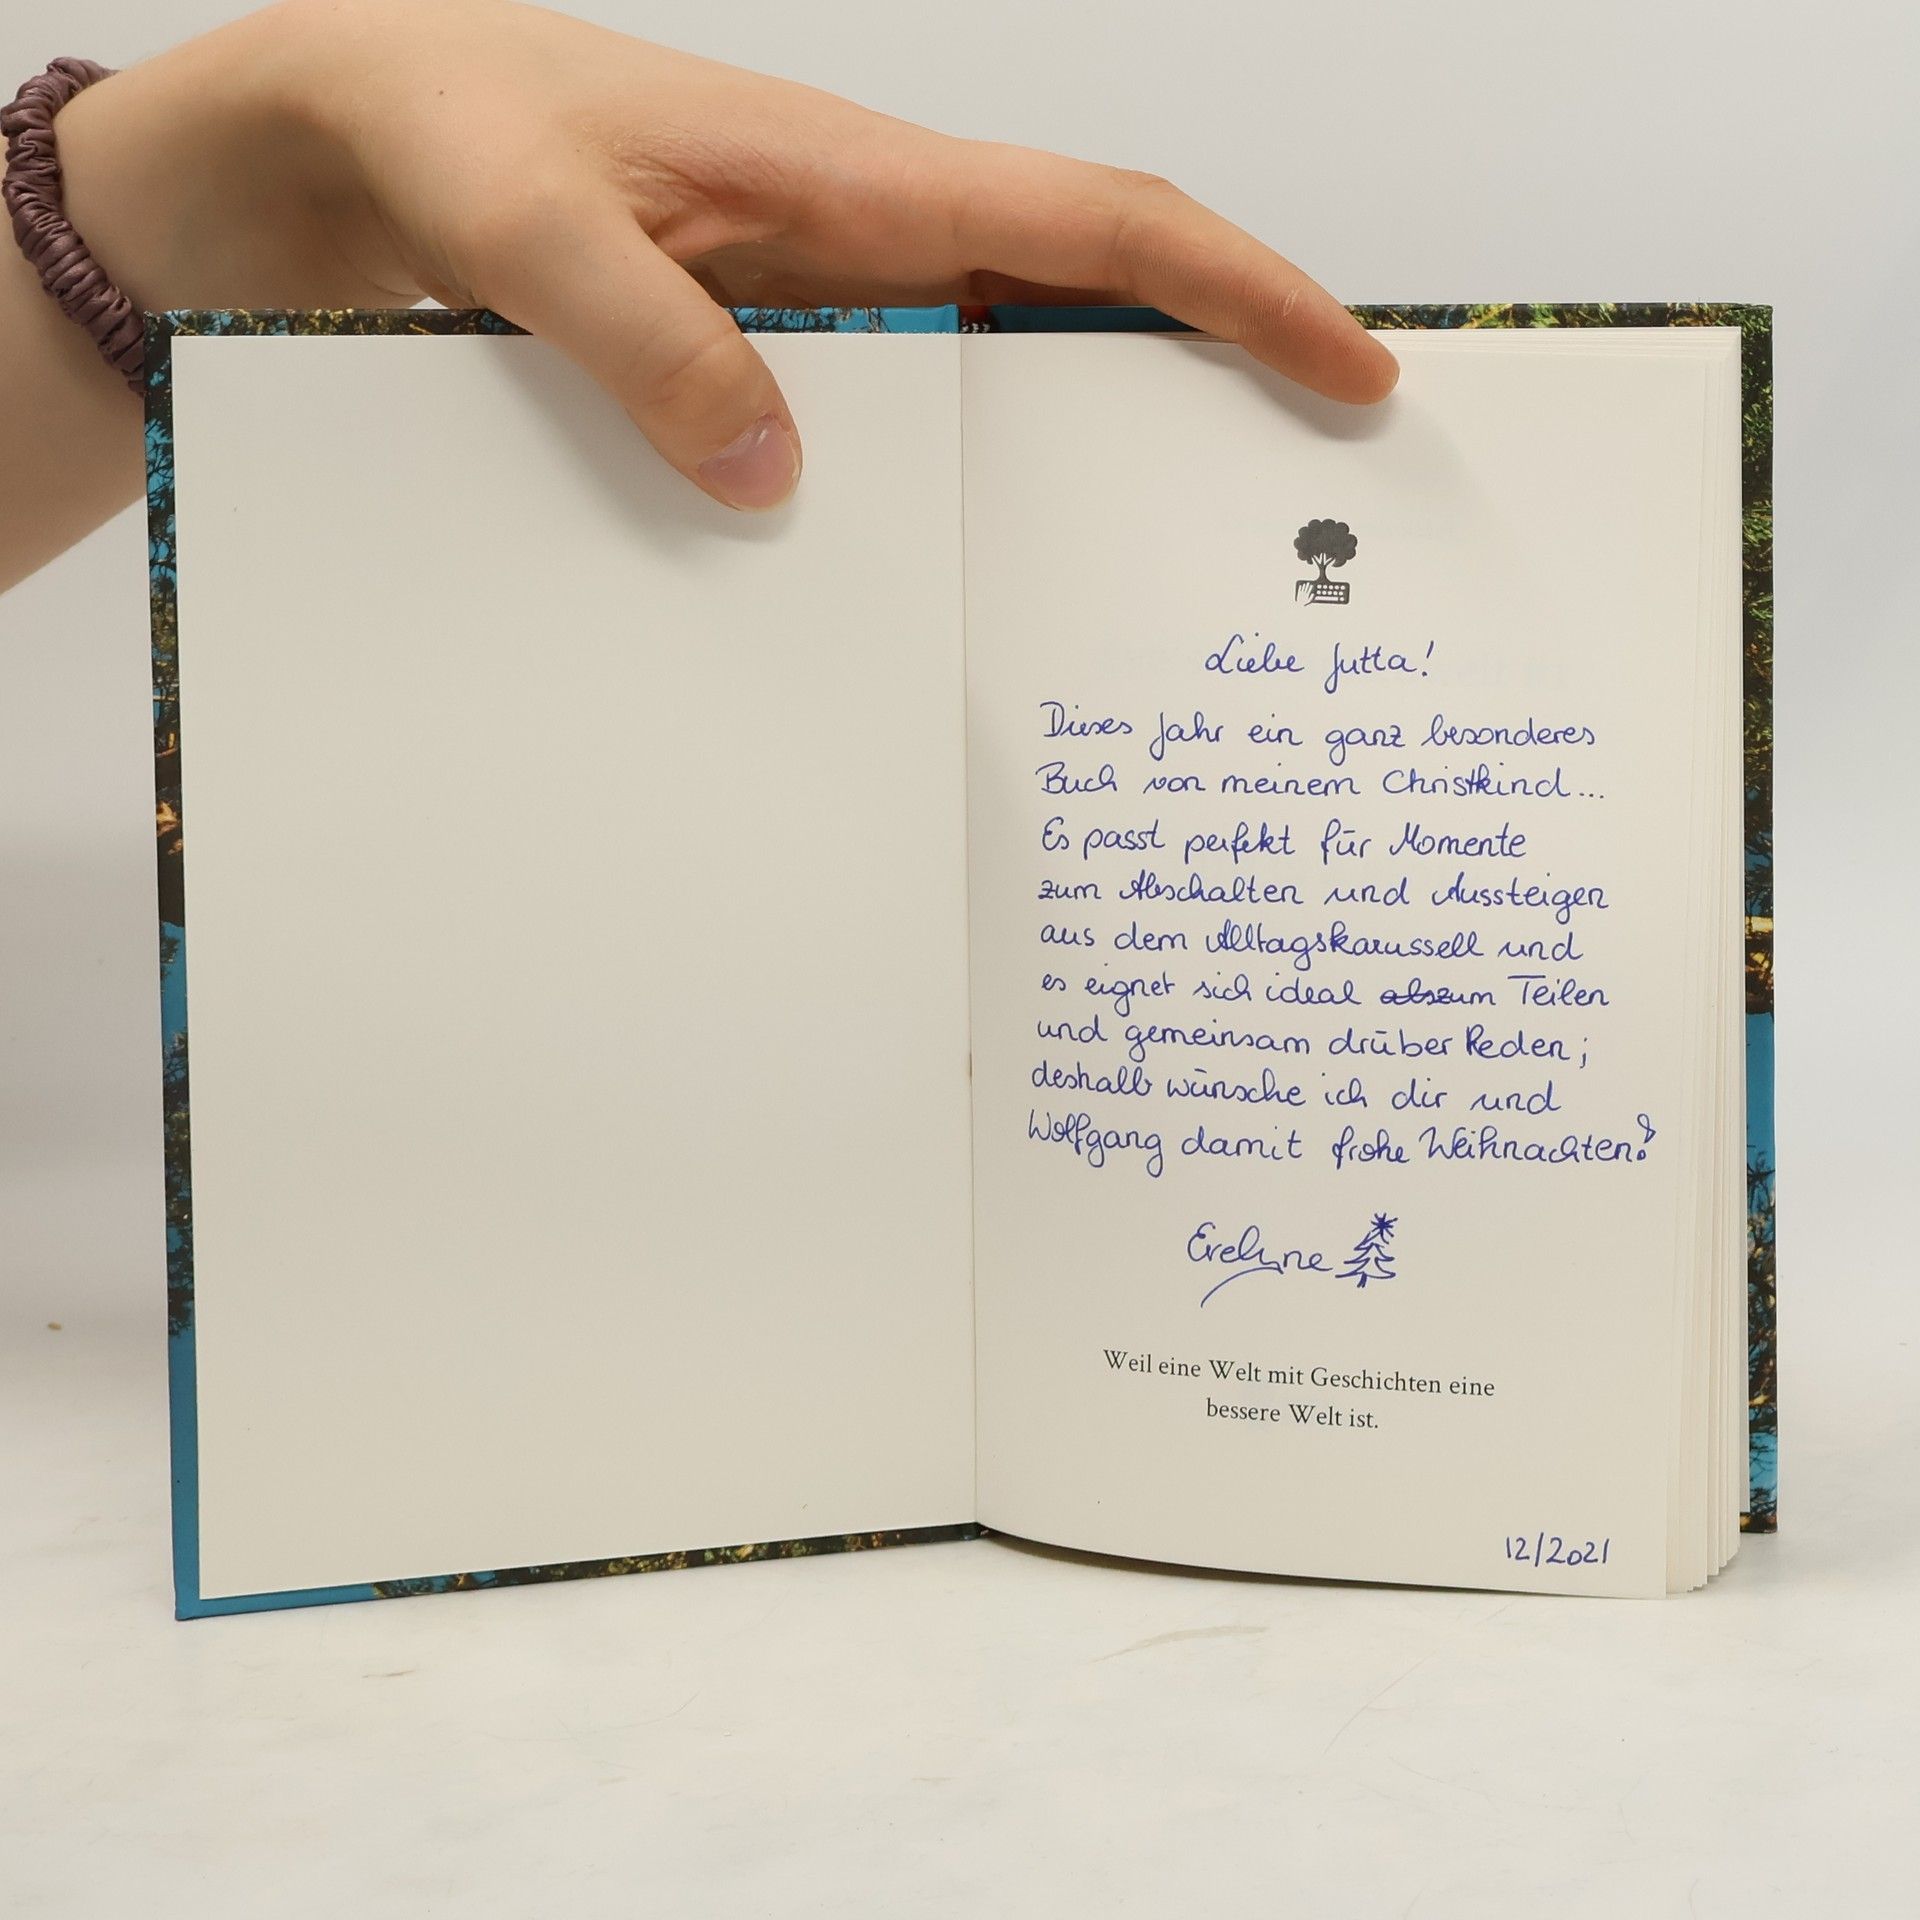 Liebe Jutta!
Dieses Jahr ein ganz besonderes
Buch von meinem Christkind...
Es passt perfekt für Momente
zum Abschalten und Aussteigen
aus dem Alltagskarussell und
es eignet sich ideal zum Teilen
und gemeinsam drüber Reden;
deshalb wünsche ich dir und
Wolfgang damit frohe Weihnachten!
Evelyne
Weil eine Welt mit Geschichten eine
bessere Welt ist.
12/2021